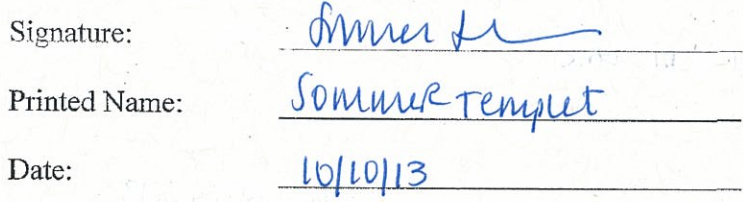 Signature: Sommer
Printed Name: Sommer Templet
Date: 10/10/13